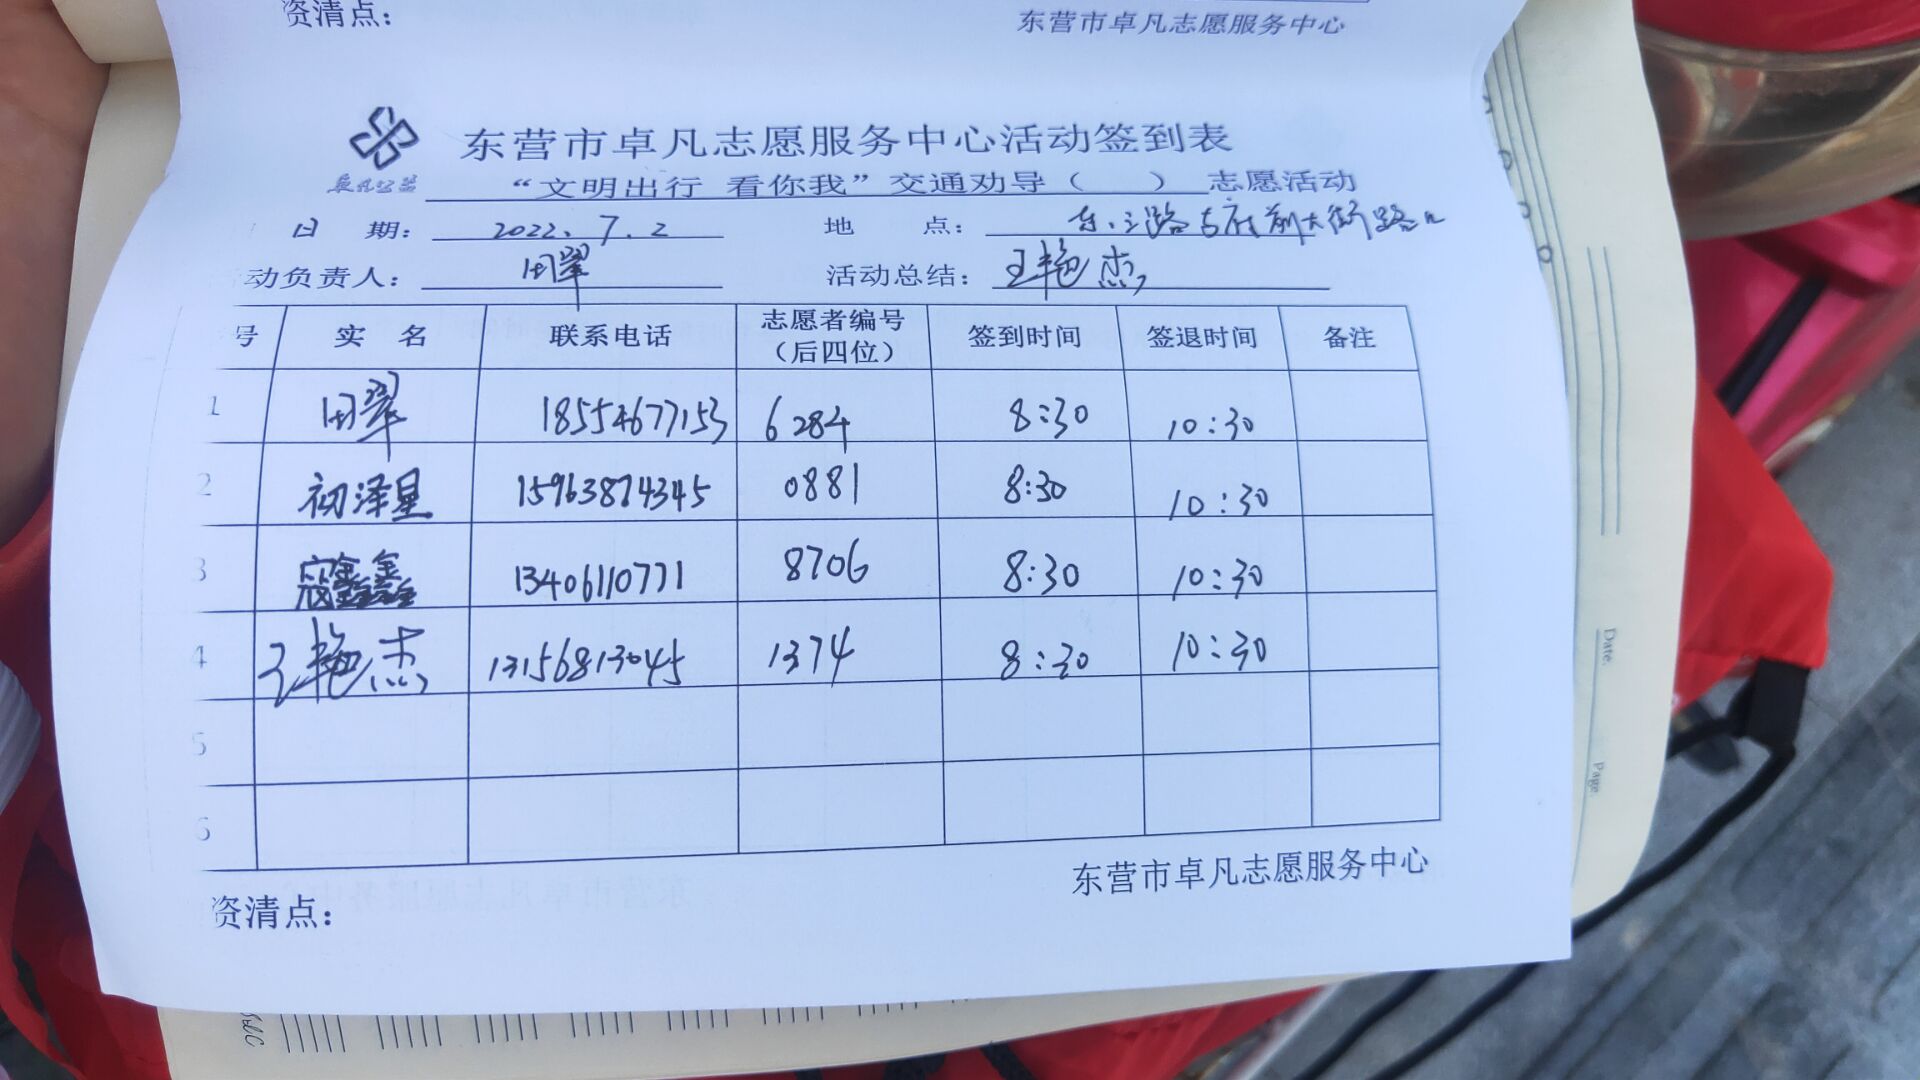 资清点：
东营市卓凡志愿服务中心
东营市卓凡志愿服务中心活动签到表
卓凡公益
“文明出行 看你我”交通劝导（ ） 志愿活动
日 期： 2022.7.2 地 点： 东三路与府前大街路口
动负责人： 田翠 活动总结： 王艳杰
号 实 名 联系电话 志愿者编号（后四位） 签到时间 签退时间 备注
1 田翠 18554677153 6284 8:30 10:30
2 初泽星 15963874345 0881 8:30 10:30
3 寇鑫鑫 13406110771 8706 8:30 10:30
4 王艳杰 13156813045 1374 8:30 10:30
5
6
东营市卓凡志愿服务中心
资清点：
Date:
Page: